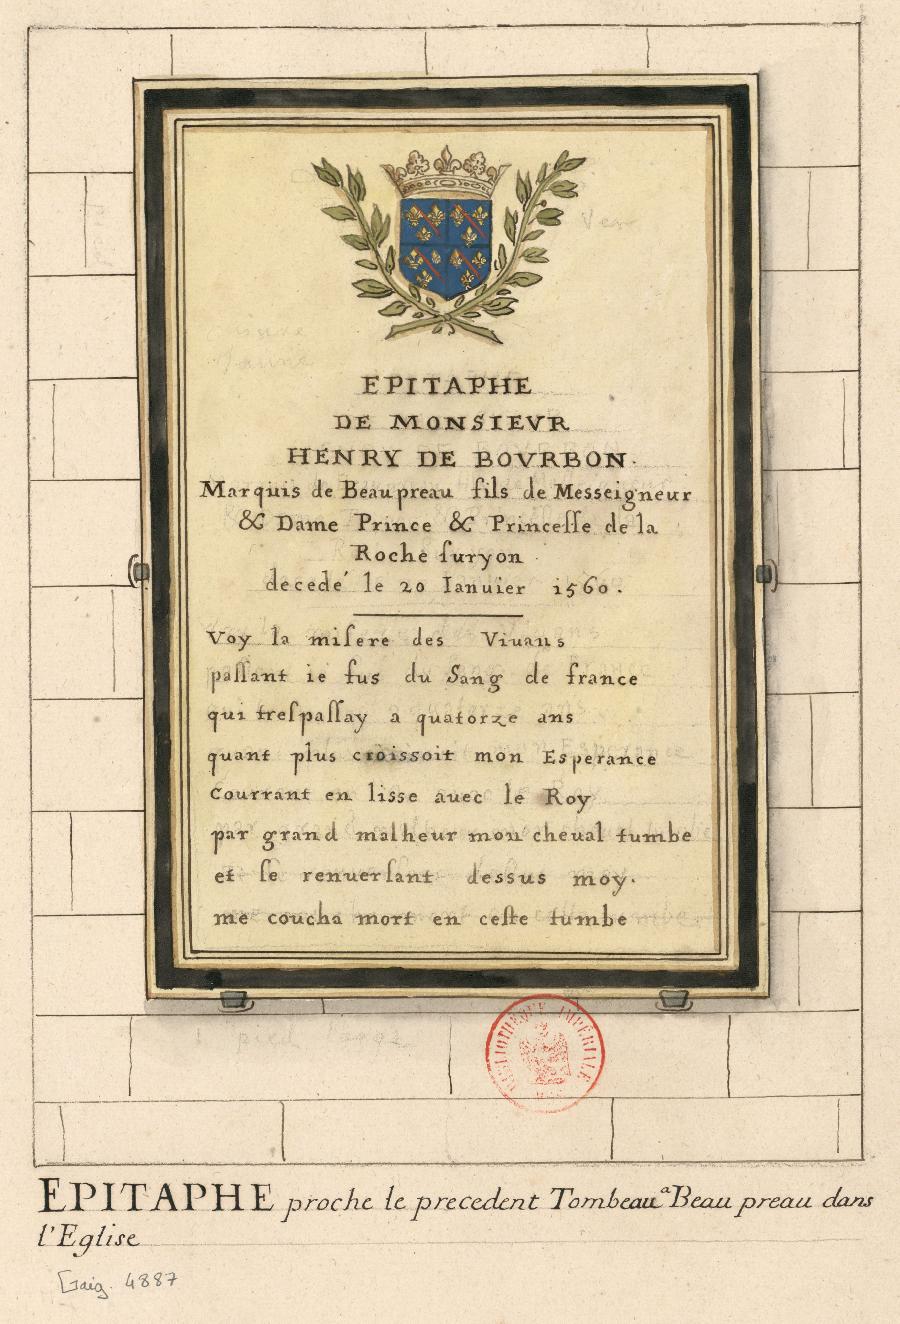 EPITAPHE
DE MONSIEVR
HENRY DE BOVRBON.
Marquis de Beaupreau fils de Messeigneur
& Dame Prince & Princeſſe de la
Roche ſuryon
decedé le 20 Ianuier 1560.
Voy la miſere des Viuans
paſſant ie fus du Sang de france
qui treſpaſſay a quatorze ans
quant plus croissoit mon Esperance
Courrant en lisse auec le Roy
par grand malheur mon cheual tumbe
et ſe renuerſant dessus moy.
me coucha mort en ceſte tumbe
BIBLIOTHEQUE IMPÉRIALE
EPITAPHE proche le precedent Tombeau a Beau preau dans
l'Eglise
Gaig. 4887